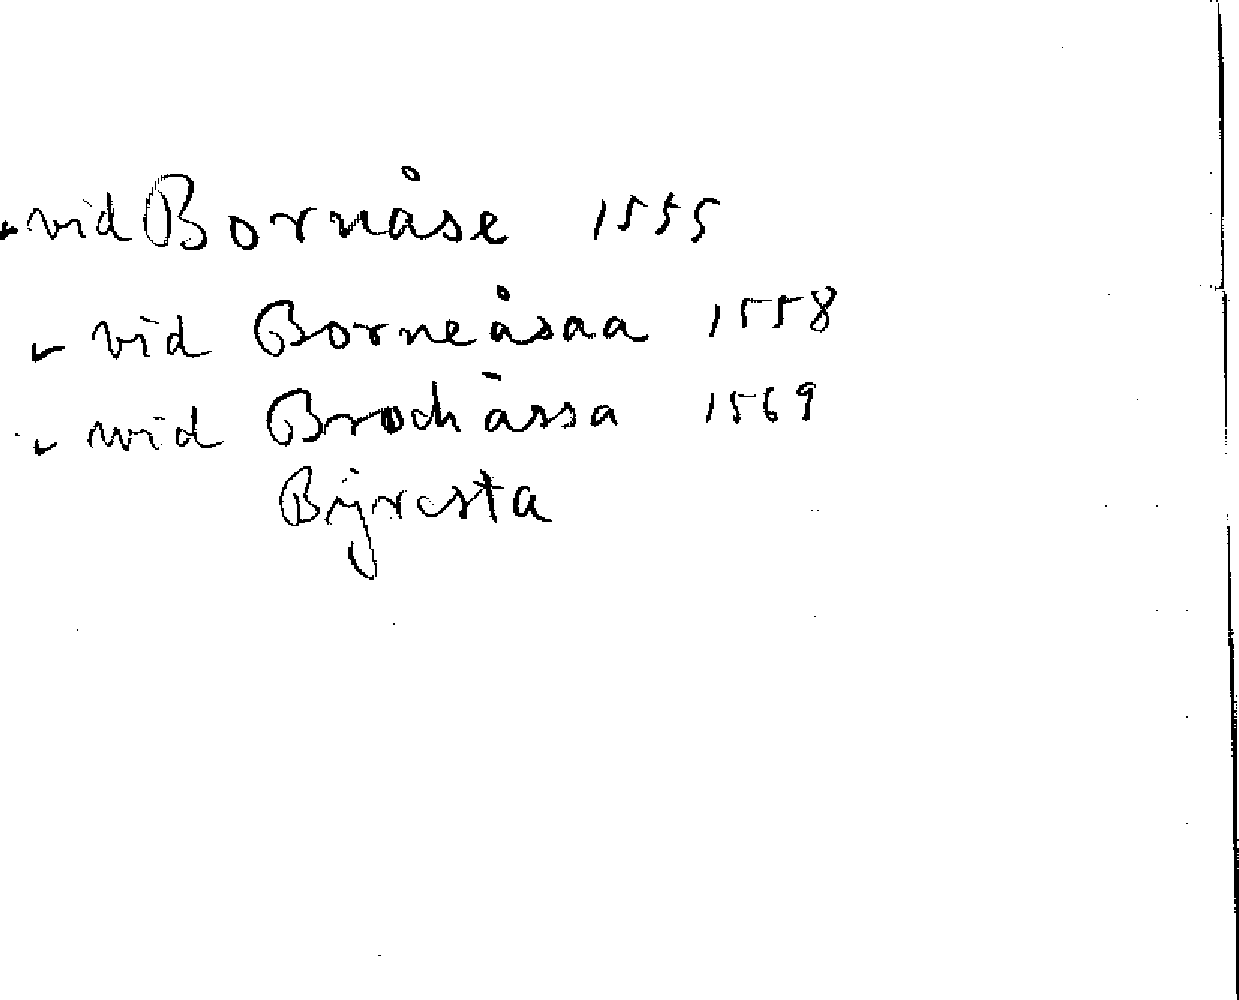 vid Bornåse 1555
vid Borneåsaa 1558
wid Brodiässa 1569
Bÿresta